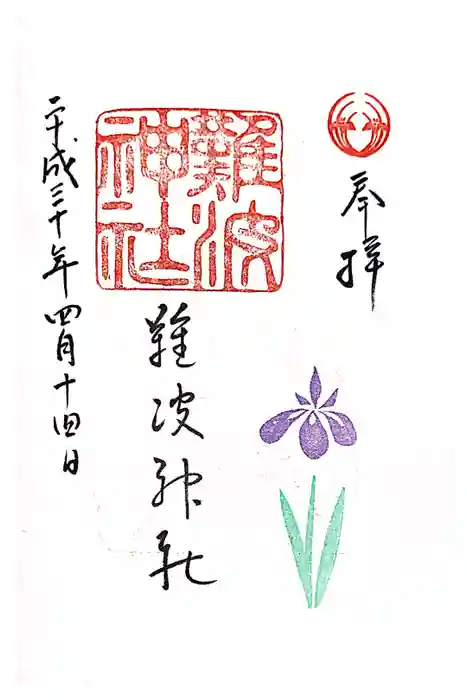 奉拝
難波
神社
難波神社
平成三十年四月十四日